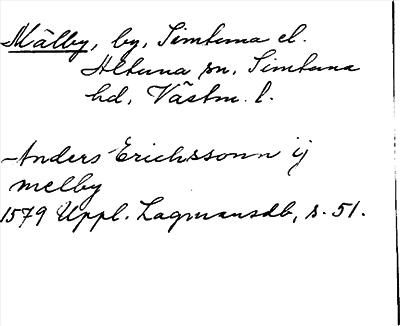 Mälby, by, Simtuna el.
Altuna sn, Simtuna
hd, Västm. l.
Anders Erichssonn ij
melby
1579 Uppl. Lagmansdb, s. 51.